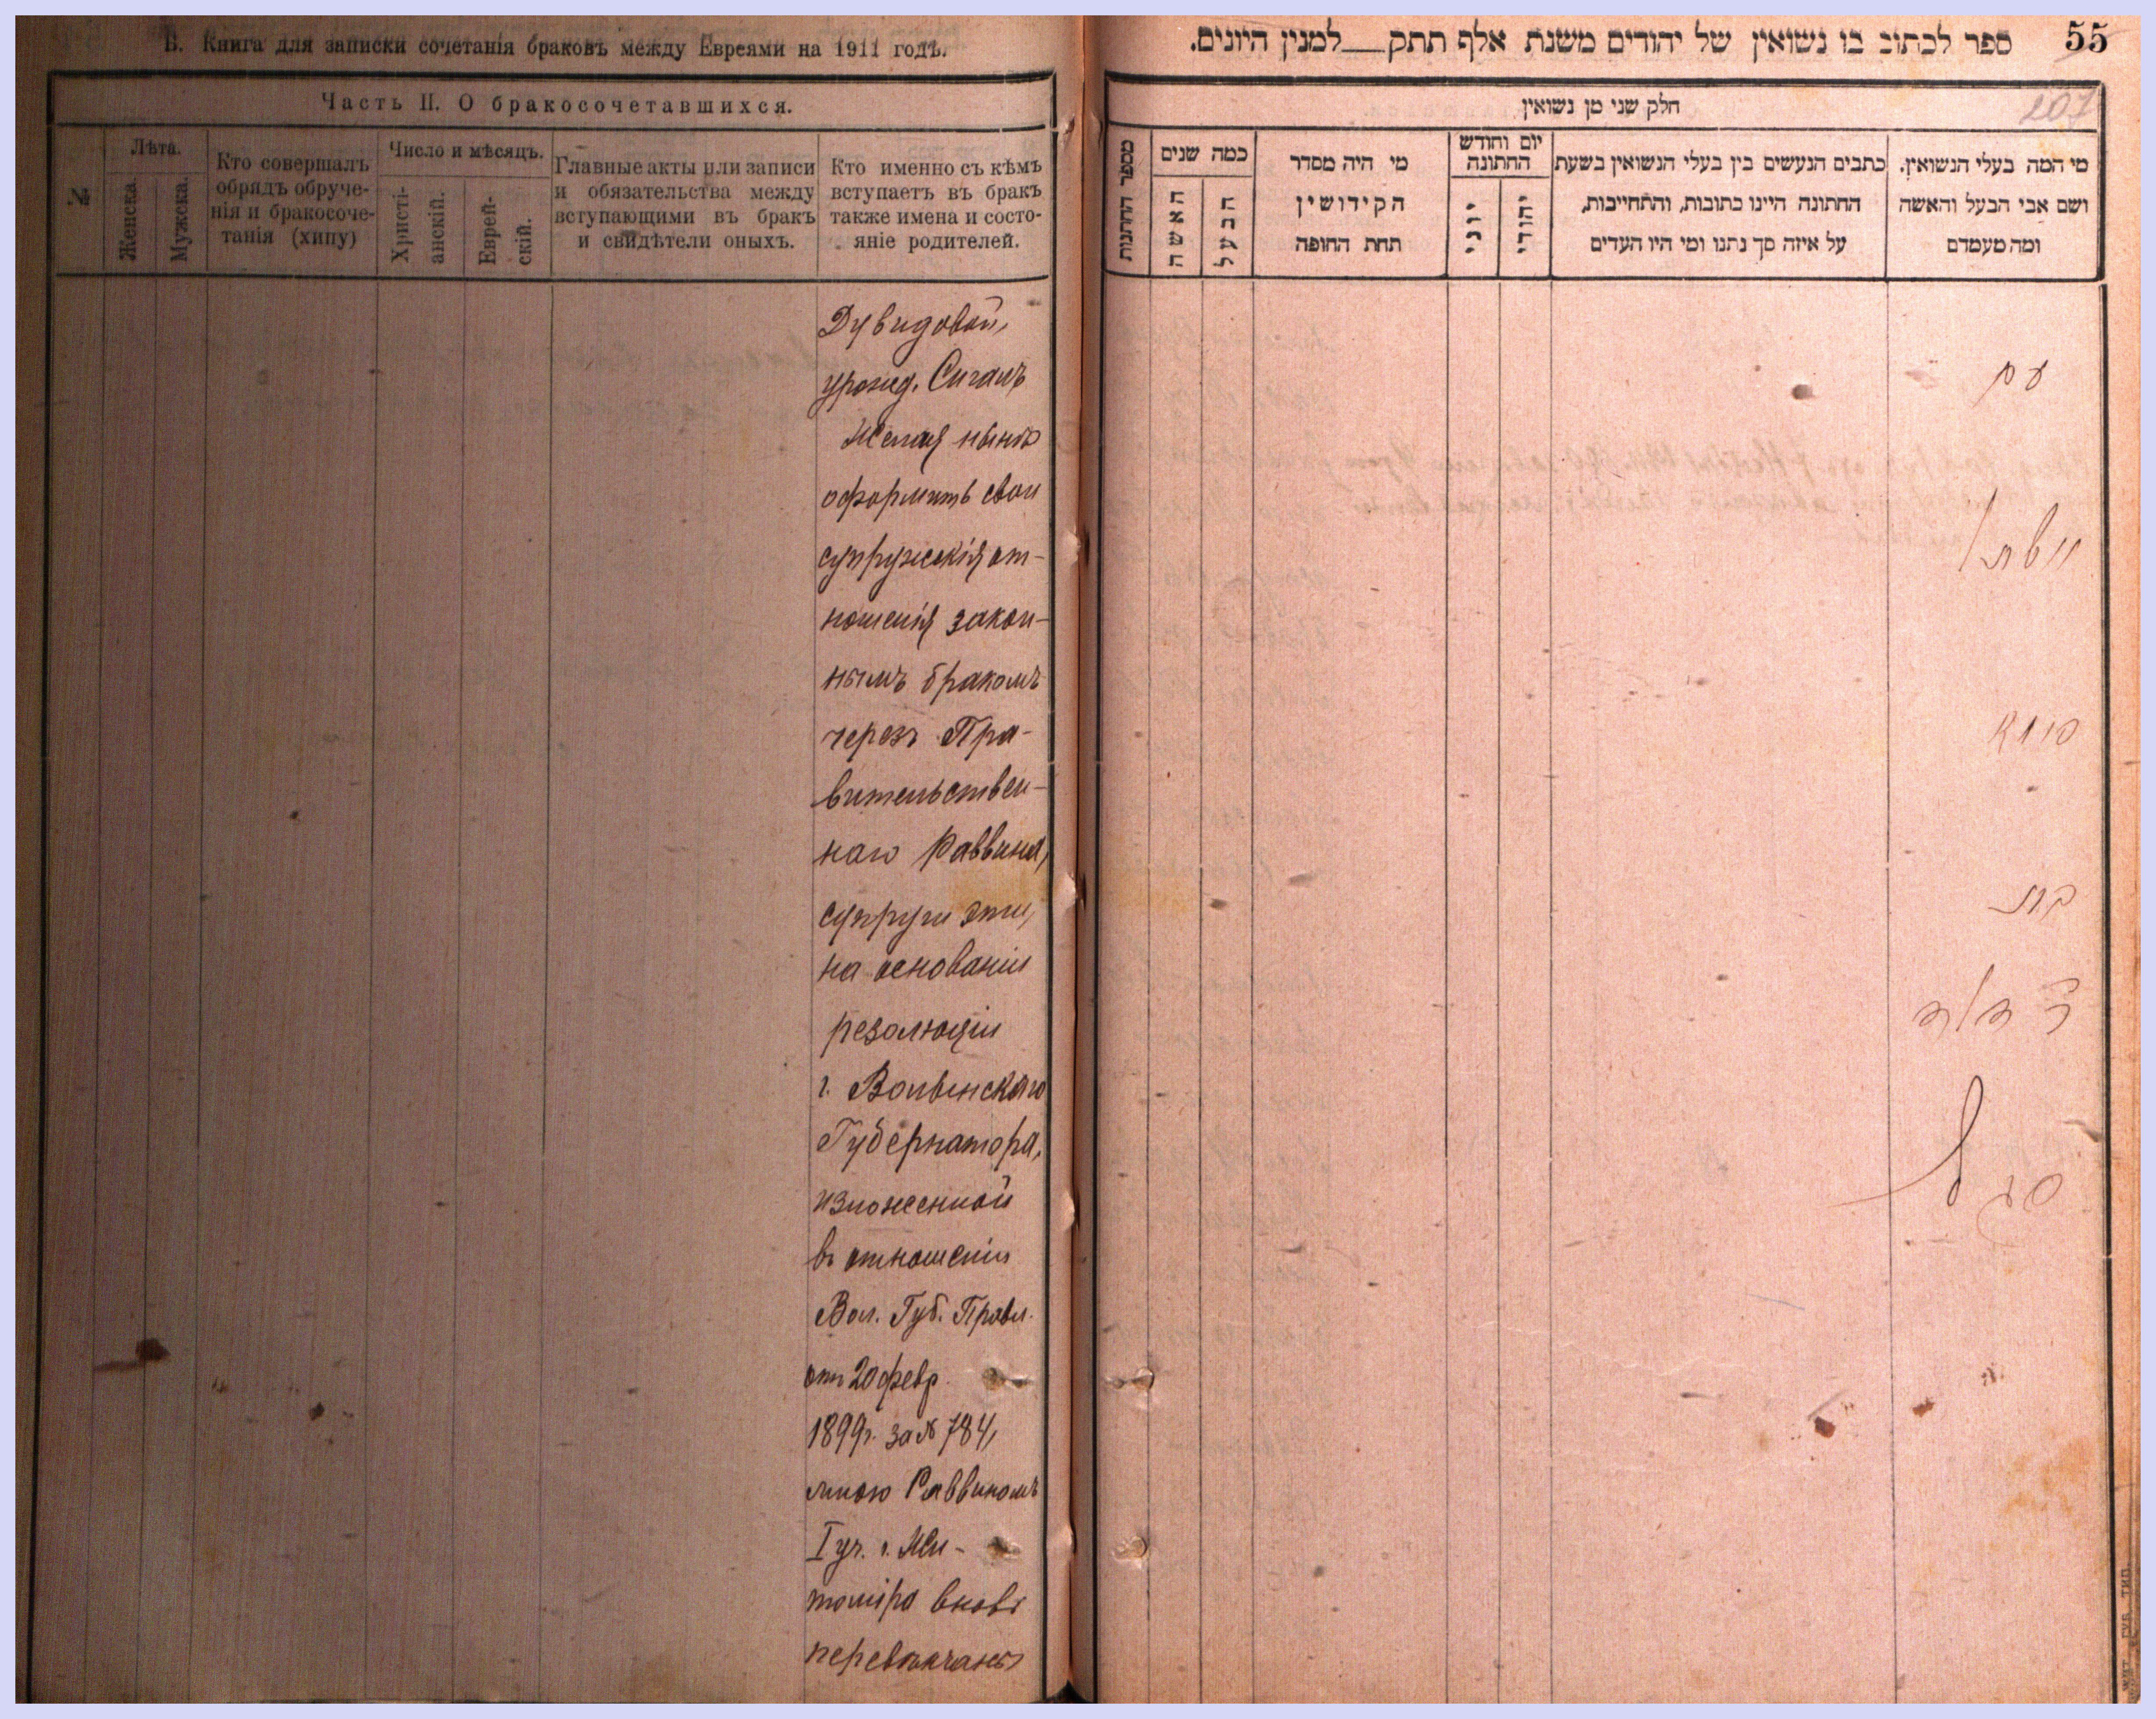 Б. Книга для записки сочетанія браковъ между Евреями на 1911 годъ.
Часть II. О бракосочетавшихся.
№
Лѣта.
Женска.
Мужска.
Кто совершалъ
обрядъ обруче-
нія и бракосоче-
танія (хипу)
Число и мѣсяцъ.
Христі-
анскій.
Еврей-
скій.
Главные акты или записи
и обязательства между
вступающими въ бракъ
и свидѣтели оныхъ.
Кто именно съ кѣмъ
вступаетъ въ бракъ
также имена и состо-
яніе родителей.
Дувидовой,
урожд. Сигалъ
Желая нынѣ
оформить свои
супружескія от-
ношенія закон-
нымъ бракомъ
черезъ Пра-
вительствен-
наго Раввина,
супруги эти,
на основаніи
резолюціи
г. Волынскаго
Губернатора,
изложенной
въ отношеніи
Вол. Губ. Правл.
отъ 20 февр.
1899г. за № 784,
мною Раввиномъ
I уч. г. Жи-
томіра вновь
перевѣнчаны
55
ספר לכתוב בו נשואין של יהודים משנת אלף תתק — למנין היונים.
207
חלק שני מן נשואין
מספר החתונות
כמה שנים
האשה
הבעל
מי היה מסדר
הקידושין
תחת החופה
יום וחודש
החתונה
יוני
יהודי
כתבים הנעשים בין בעלי הנשואין בשעת
החתונה היינו כתובות, והתחייבות,
על איזה סך נתנו ומי היו העדים
מי המה בעלי הנשואין.
ושם אבי הבעל והאשה
ומה מעמדם
עם
סגל